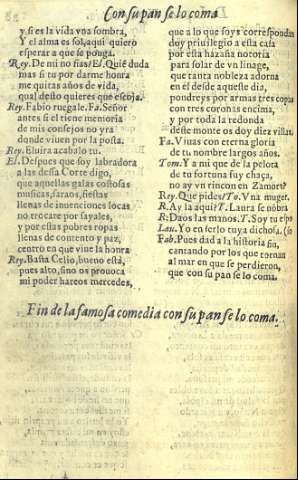 Con su pan se lo coma
y si es la vida vna sombra,
Y el alma es sol, aqui quiero
esperar a que se ponga.
Rey. De mi no fias? El. Qué duda
mas si tu por darme honra
me quitas años de vida,
qual destos quieres que escoja.
Rey. Fabio ruegale. Fa. Señor
antes si el tiene memoria
de mis consejo no yra
donde viuen por la posta.
Rey. Eluira acabalo tu.
El. Despues que soy labradora
a las dessa Corte digo,
que aquellas galas costosas
musicas, saraos, fiestas
llenas de inuenciones locas
no trocare por sayales,
y por estas pobres ropas
llenas de contento y paz,
centro en que viue la honra
Rey. Basta Celio, bueno està,
pues alto, sino os prouoca
mi poder hazeros mercedes,
que a lo que soys correspondan
doy priuilegio a esta casa
por esta hazaña notoria
para solar de vn linage,
que tanta nobleza adorna
en el desde aqueste dia,
pondreys por armas tres copas
con tres coronas encima,
y por toda la redonda
deste monte os doy diez villas
Fa. Viuas con eterna gloria
de tu nombre largos años.
Tom. Y a mi que de la pelota
de tu fortuna fuy chaça,
no ay vn rincon en Zamora?
Rey. Que pides? To. Vna muger.
R. Ay la aqui? T. Laura se nõbra
R. Daos las manos. T. Soy tu espo
Lau. Yo en serlo tuya dichosa.
Fab. Pues dad a la historia fin,
cantando por los que tornan
al mar en que se perdieron,
que con su pan se lo coma.
Fin de la famosa comedia con su pan se lo coma.